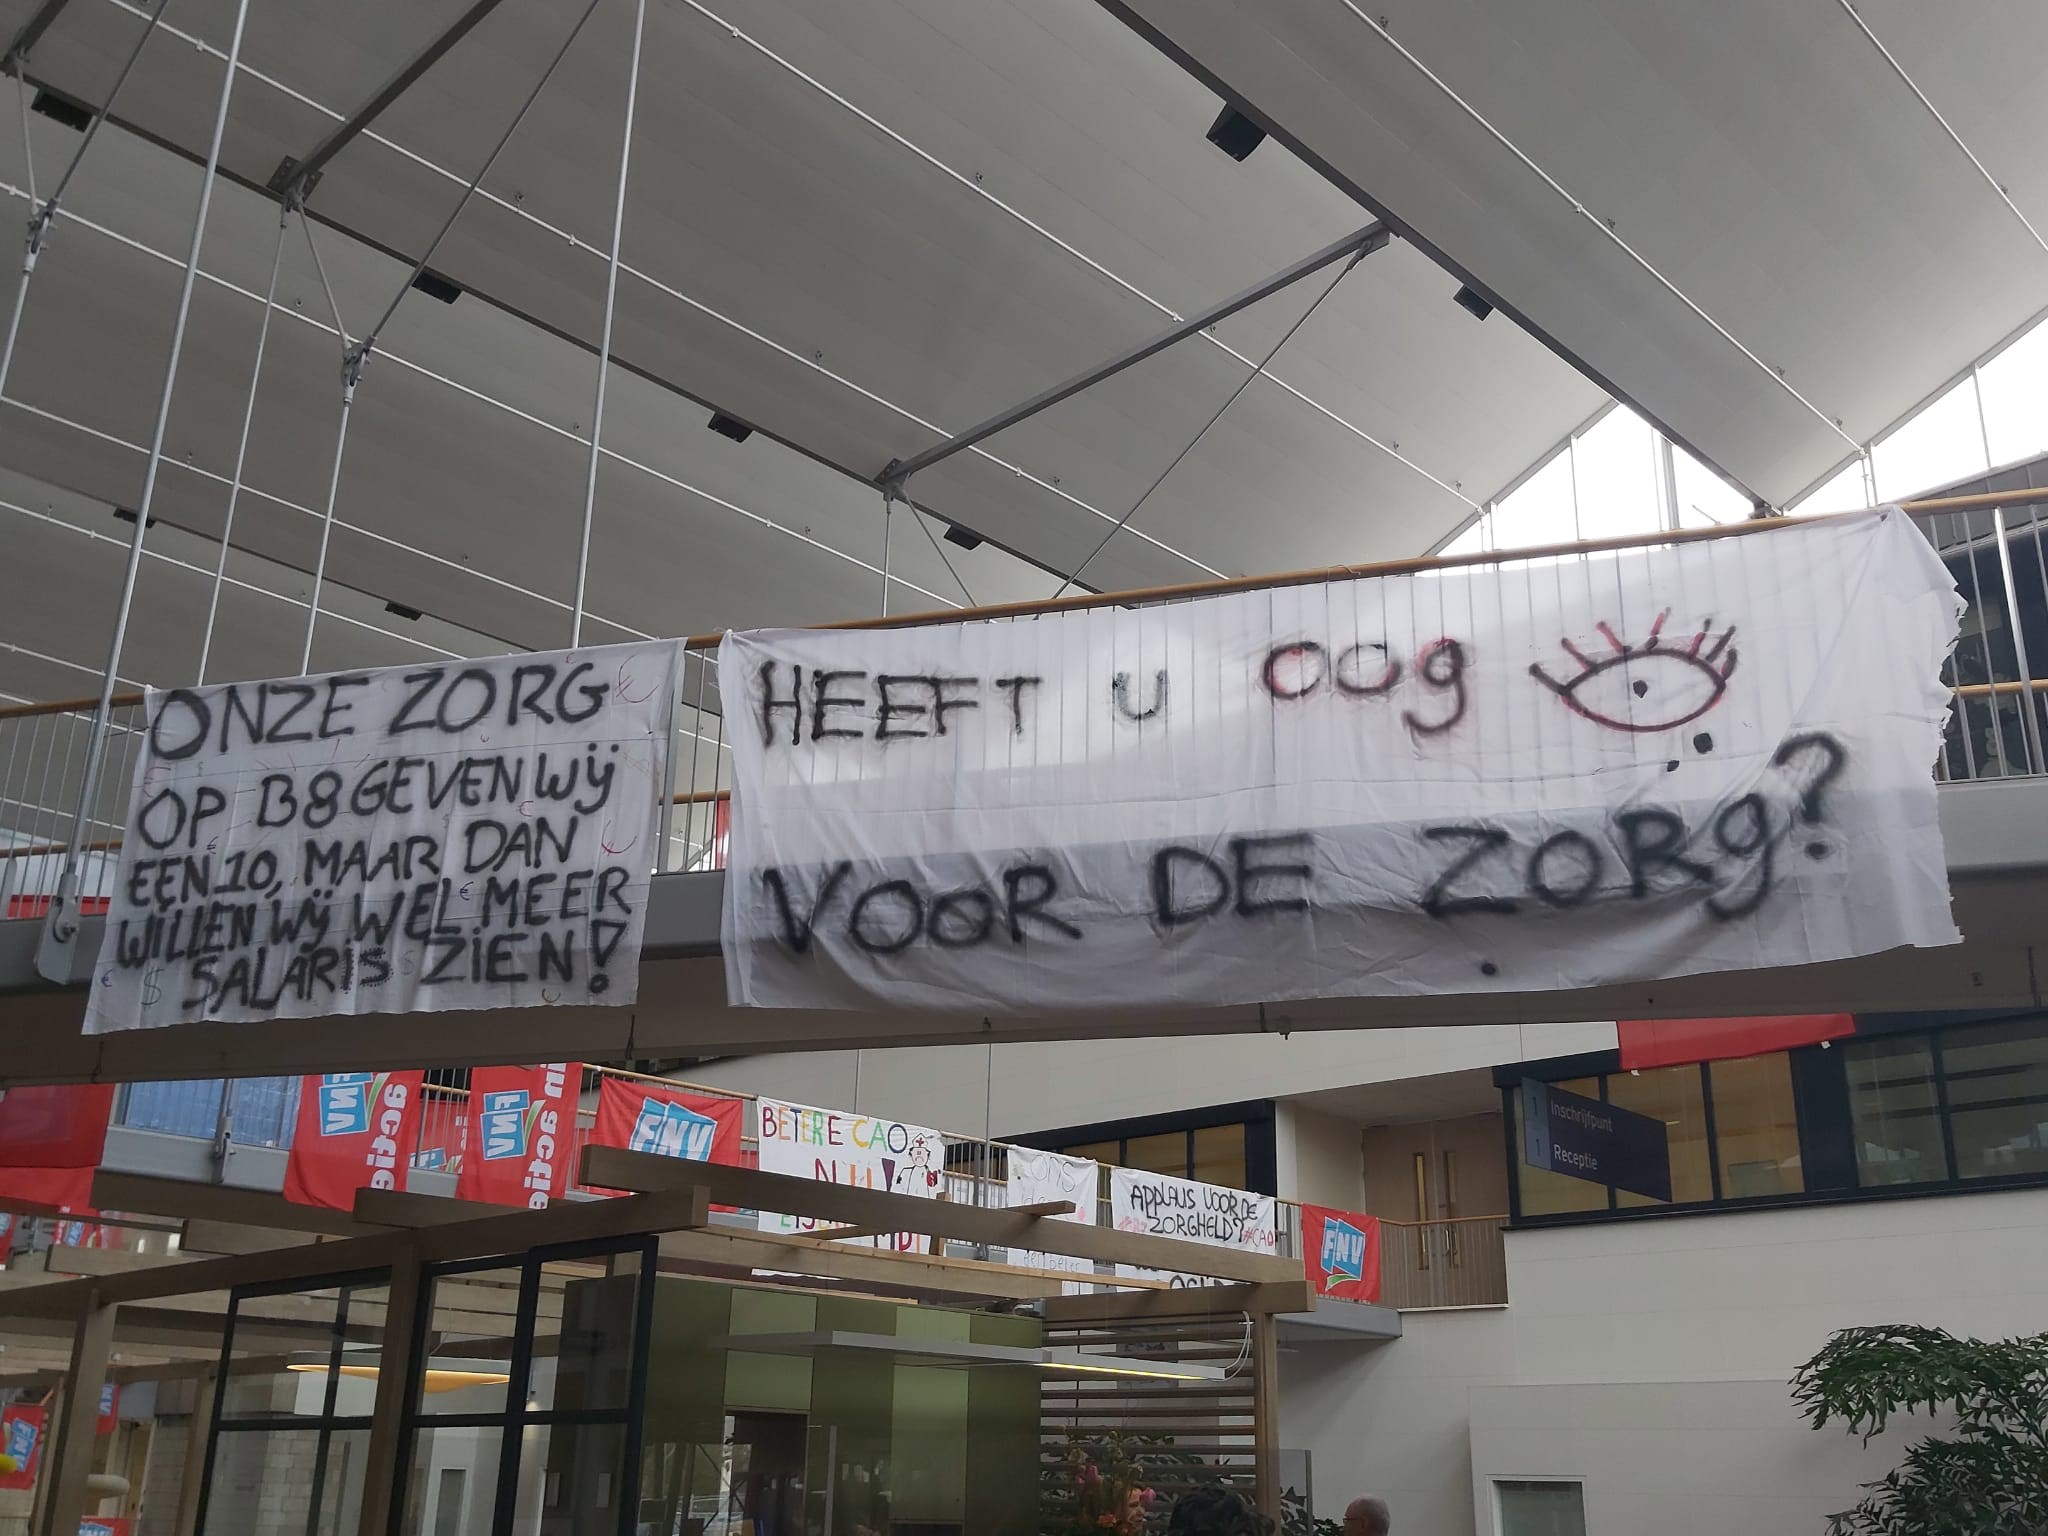 ONZE ZORG
OP B8 GEVEN WIJ
EEN 10, MAAR DAN
WILLEN WIJ WEL MEER
SALARIS ZIEN!
HEEFT U OOg
VOOR DE ZORg?
FNV
in actie
FNV
in actie
FNV
BETERE CAO
NU!
ONS
APPLAUS VOOR DE
ZORGHELD? #CAO
FNV
1 Inschrijfpunt
1 Receptie
FNV
FNV